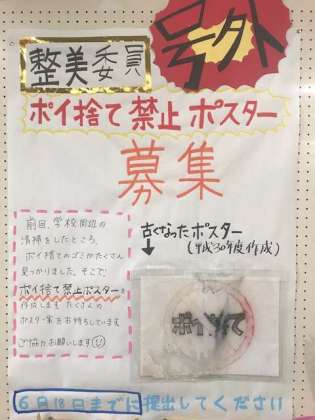 号外
整美委員
ポイ捨て禁止ポスター
募集
前回、学校周辺の
清掃をしたところ、
ポイ捨てのゴミがたくさん
見つかりました。そこで
ポイ捨て禁止ポスターを
作成します。たくさんの
ポスター案をお待ちしています
ご協力お願いします
古くなったポスター
(平成30年度作成)
6月18日までに提出してください